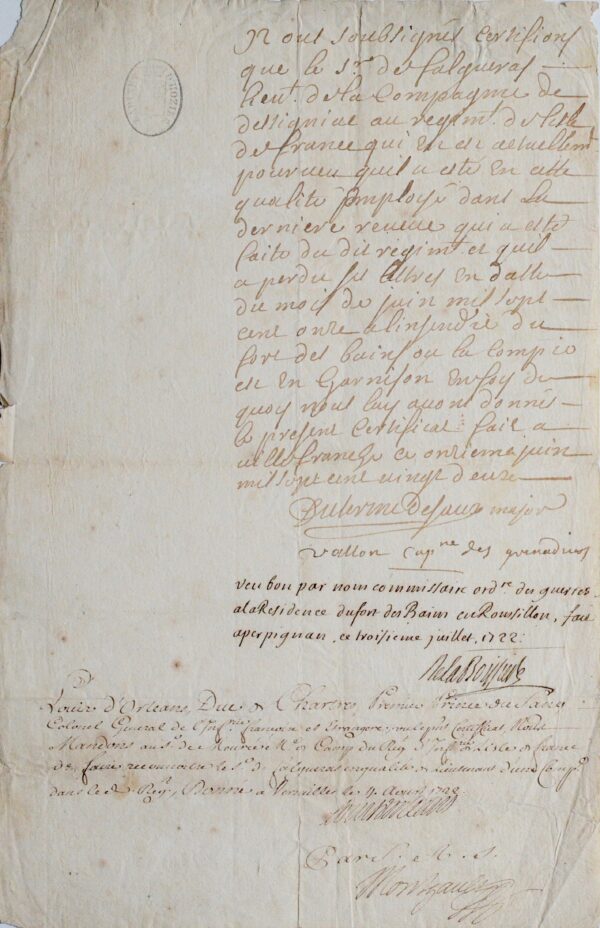 Nous soubsignés certifions
que le Sr. de Falgueras
lieut. de la Compagnie de
dessigniac au regimt. de lisle
de france qui en est actuellemt
pourveu quil a esté en cette
qualité Employé dans la
derniere reveue qui a esté
faite du dit regimt. et quil
a perdu ses lettres en datte
du mois de juin mil sept
cent onze a linsendie du
fort des bains ou la compie
est en Garnison En foy de
quoy nous luy avons donné
le present Certificat fait a
villefranche ce onzieme juin
mil sept cent vingt deux
major
vallon capne des grenadiers
veu bon par nous commissaire ordre. des guerres
a la Residence du fort des Bains en Roussillon, fait
a perpignan, ce troisieme juillet, 1722.
Louis d'Orleans, Duc de Chartres, Premier Prince du Sang
Colonel General de l'Infrie françoise et Etrangere, veu le pnt Certificat, Nous
Mandons au Sr. de Camp du Regt d'Infrie de l'Isle de france
de faire reconnoitre le Sr. de Falgueras en qualité de Lieutenant d'une Compie
dans le d. Regt, Donné a Versailles le 4 Aoust 1722
Louis d'Orleans
Par S. A. S.